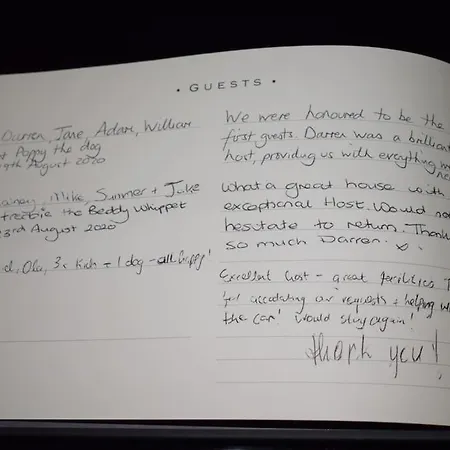 • GUESTS •
Darren, Jane, Adam, William
Poppy the dog
9th August 2020
We were honoured to be the
first guests. Darren was a brilliant
host, providing us with everything we
Mike, Summer + Jake
Freebie the Beddy Whippet
23rd August 2020
What a great house with
exceptional Host. Would no
hesitate to return. Thank
so much Darren. x
3x Kids + 1 dog - all happy!
Excellent host - great facilities
for our requests + helping w
the car! Would stay again!
thank you!